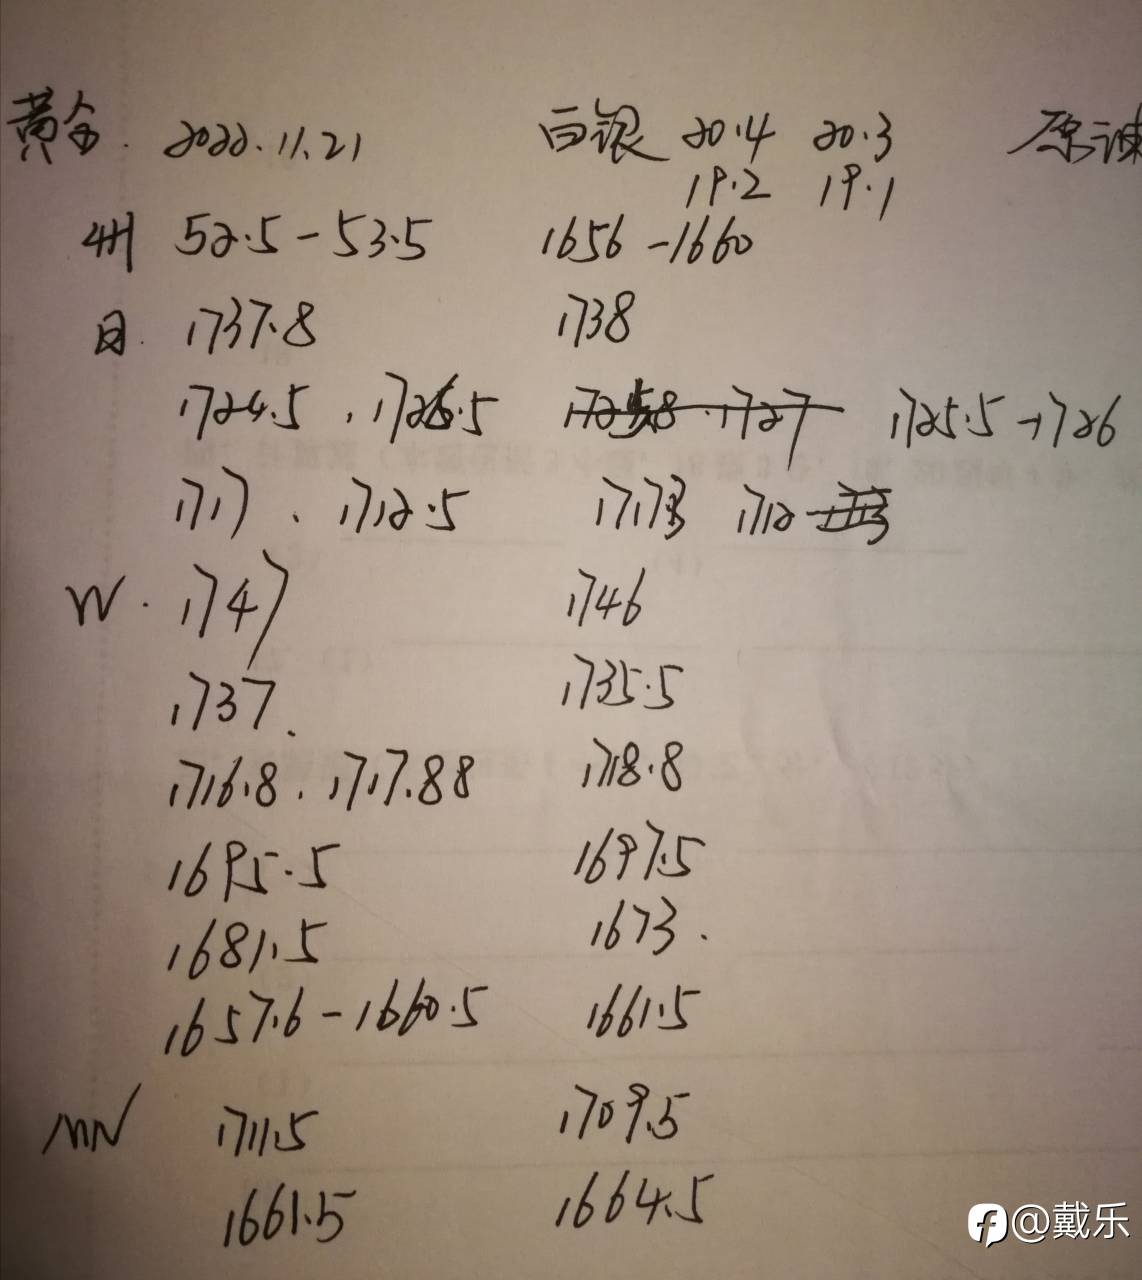 黄金. 2022.11.21 白银 20.4 20.3 原诚
19.2 19.1
4H 52.5-53.5 1656-1660
日. 1737.8 1738
1724.5 . 1726.5 1727 1725.5-1726
1717 . 1712.5 1717 1712
W. 1747 1746
1737. 1735.5
1716.8 . 1717.88 1718.8
1695.5 1697.5
1681.5 1673.
1657.6-1660.5 1661.5
MN 1711.5 1709.5
1661.5 1664.5
@戴乐